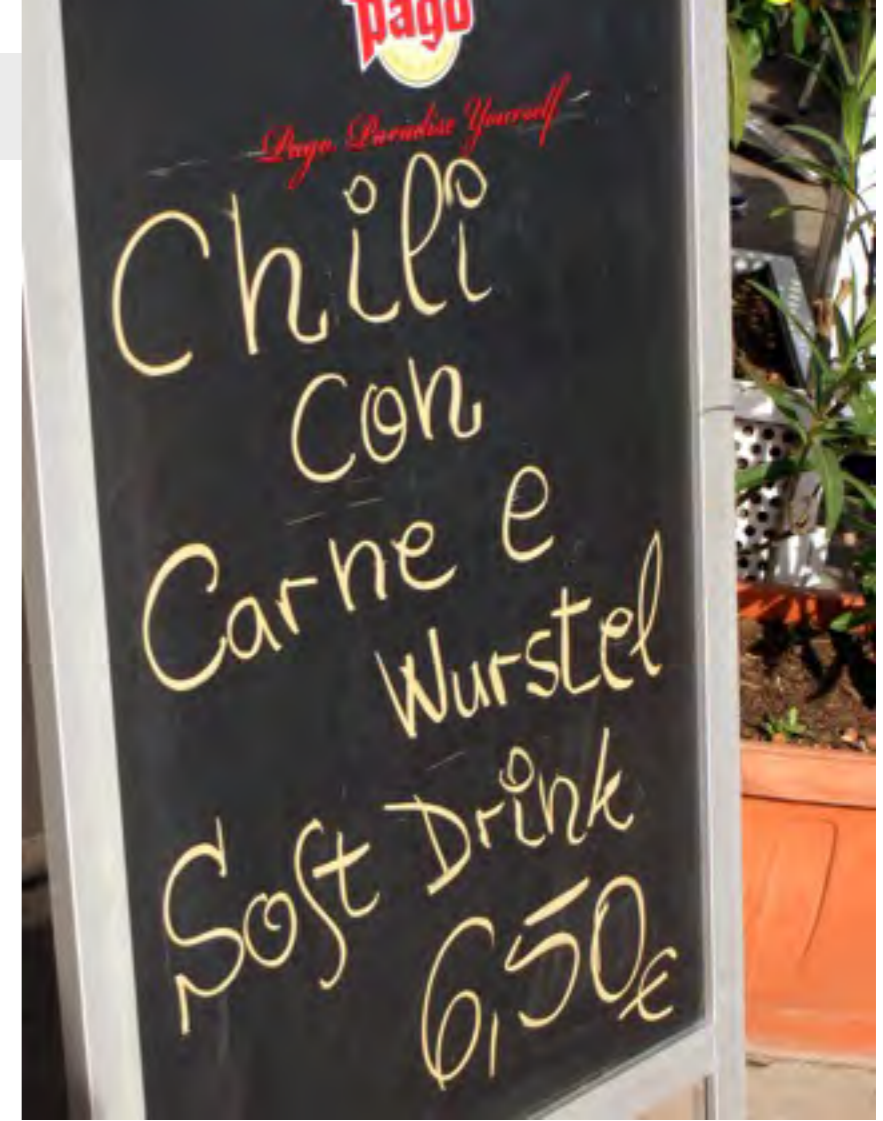 pago
Pago. Paradise Yourself
Chili
con
Carne e
Wurstel
Soft Drink
6,50€